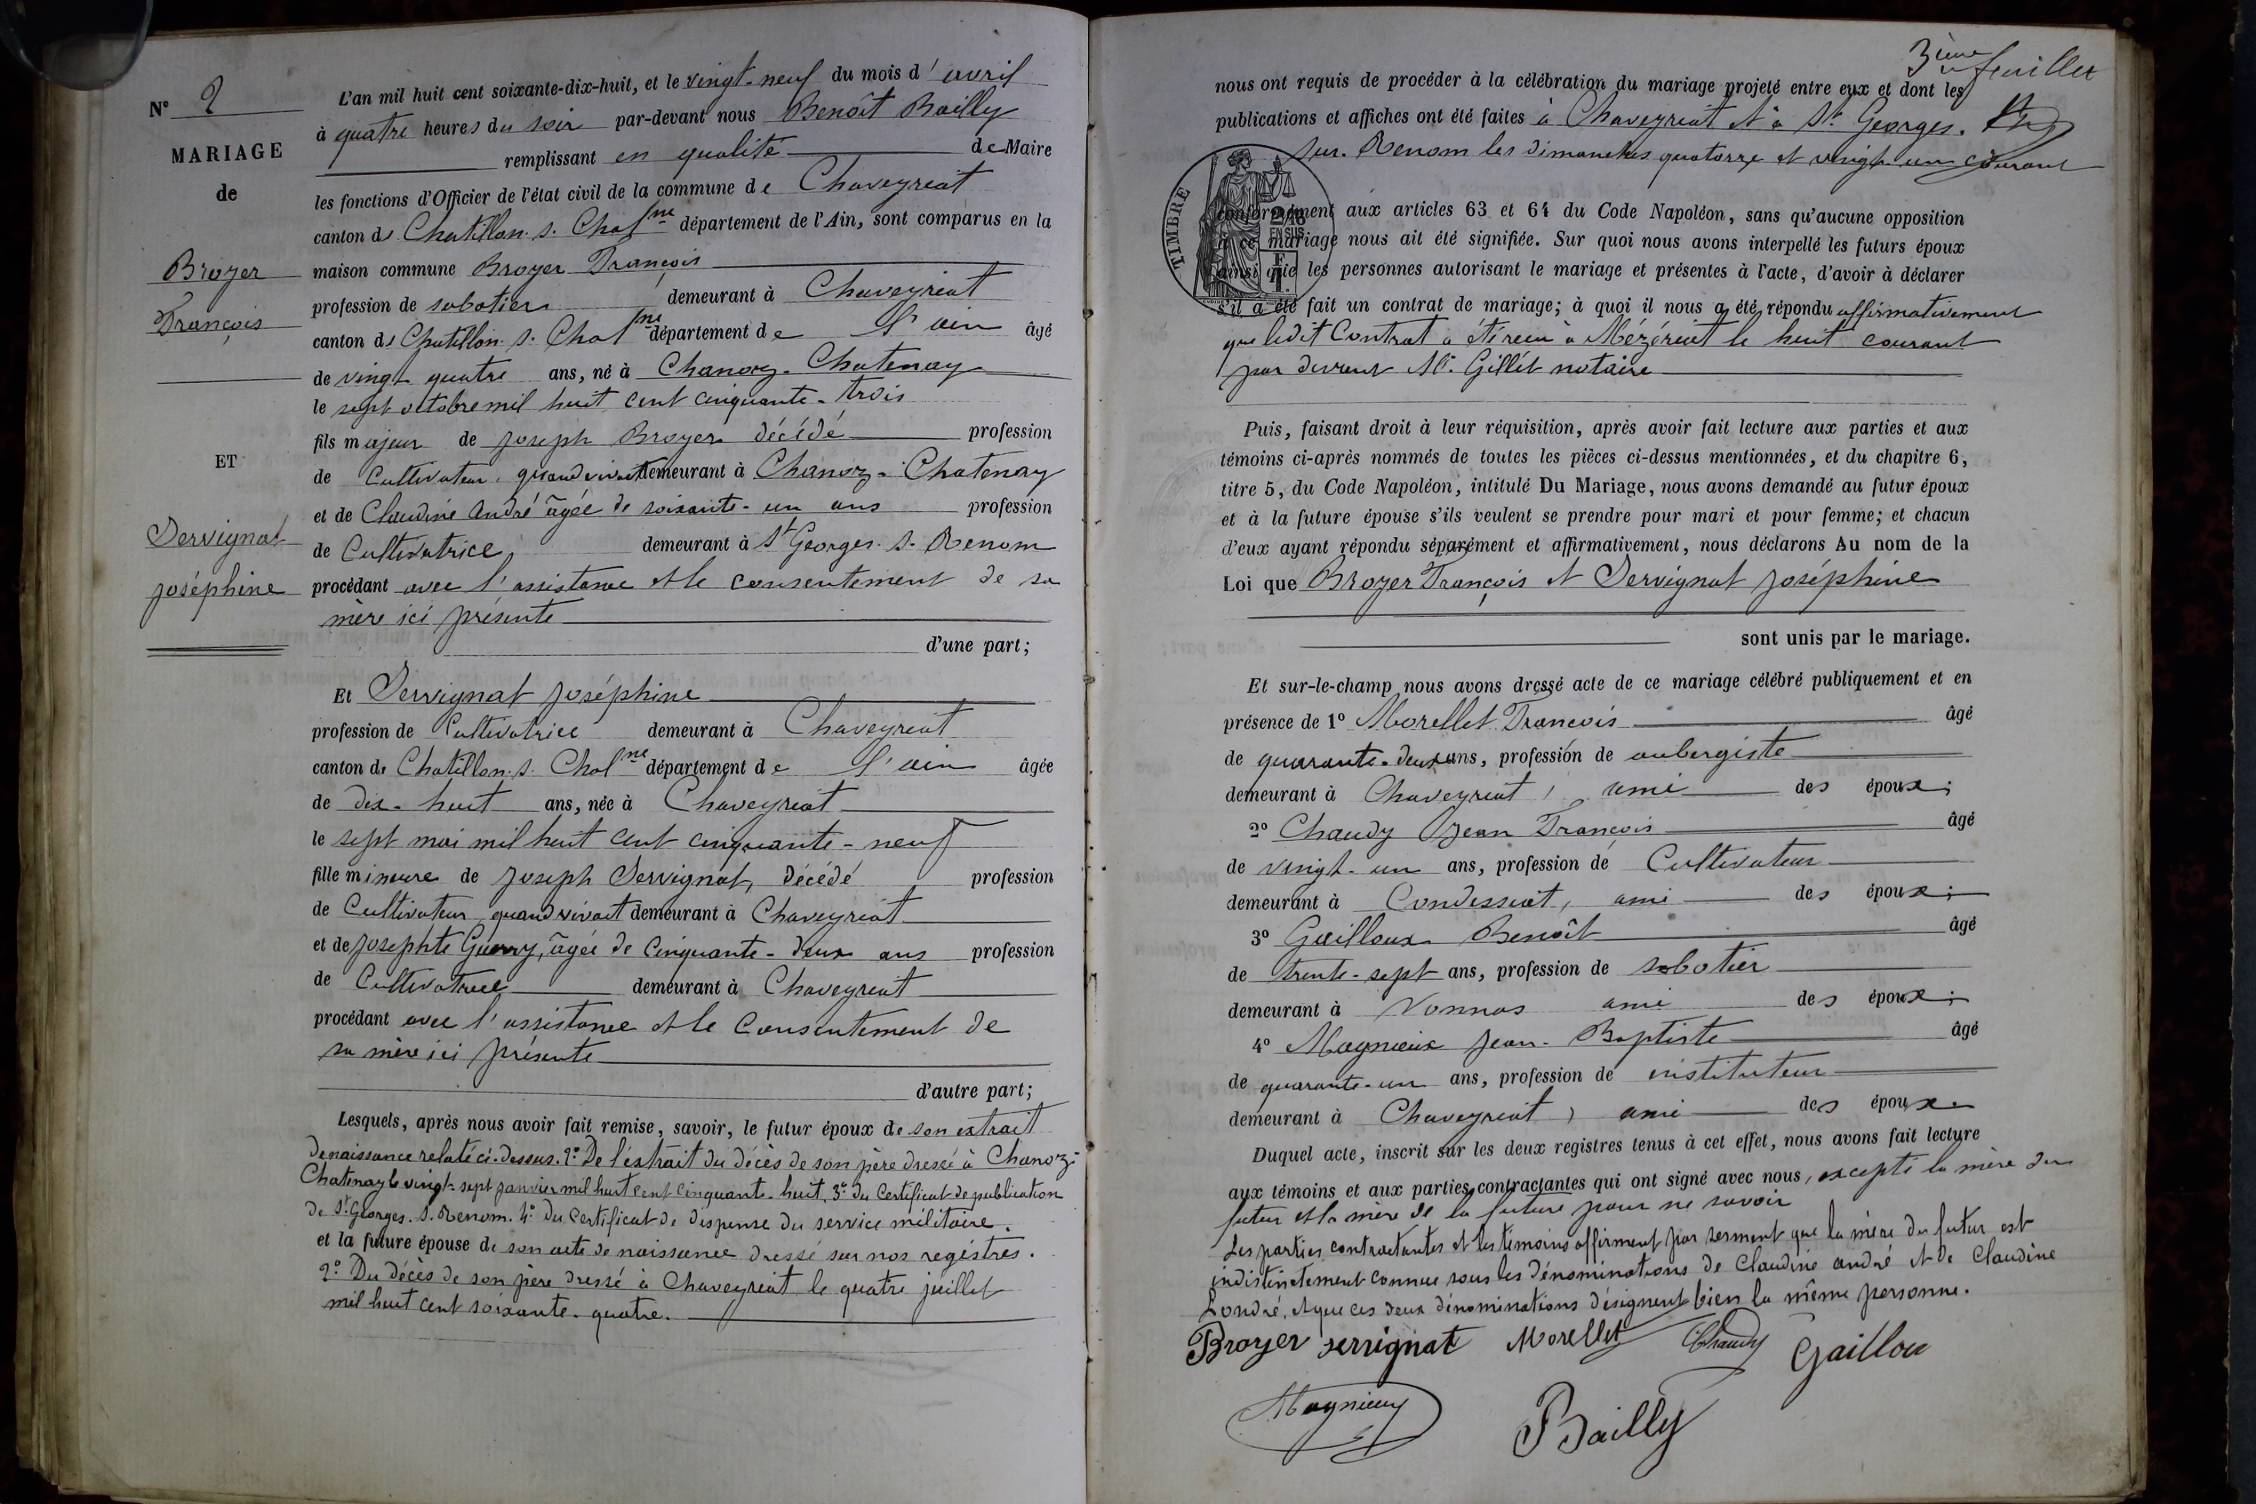 N° 2
MARIAGE
de
Broyer
François
ET
Servignat
Joséphine
L'an mil huit cent soixante-dix-huit, et le vingt-neuf du mois d'avril
à quatre heures du soir par-devant nous Benoît Bailly
remplissant en qualité de Maire
les fonctions d'Officier de l'état civil de la commune de Chaveyriat
canton de Chatillon. s. Chal^ne département de l'Ain, sont comparus en la
maison commune Broyer François
profession de sabotier demeurant à Chaveyriat
canton de Chatillon. s. Chal^ne département de l'ain âgé
de vingt quatre ans, né à Chanoz-Chatenay
le sept octobre mil huit cent cinquante-trois
fils majeur de Joseph Broyer décédé profession
de Cultivateur quand vivait demeurant à Chanoz-Chatenay
et de Claudine André âgée de soixante-un ans profession
de Cultivatrice demeurant à St Georges. s. Renom
procédant avec l'assistance et le consentement de sa
mère ici présente
d'une part;
Et Servignat Joséphine
profession de Cultivatrice demeurant à Chaveyriat
canton de Chatillon. s. Chal^ne département de l'ain âgée
de dix-huit ans, née à Chaveyriat
le sept mai mil huit cent cinquante-neuf
fille mineure de Joseph Servignat, décédé profession
de Cultivateur quand vivait demeurant à Chaveyriat
et de Josephte Guerry, âgée de cinquante-deux ans profession
de Cultivatrice demeurant à Chaveyriat
procédant avec l'assistance et le consentement de
sa mère ici présente
d'autre part;
Lesquels, après nous avoir fait remise, savoir, le futur époux de son extrait
de naissance relaté ci-dessus. 2° De l'extrait du décès de son père dressé à Chanoz-
Chatenay le vingt-sept janvier mil huit cent cinquante-huit. 3° du certificat de publication
de St Georges. s. Renom. 4° du certificat de dispense du service militaire.
et la future épouse de son acte de naissance dressé sur nos registres.
2° Du décès de son père dressé à Chaveyriat le quatre juillet
mil huit cent soixante-quatre.
3ième feuillet
nous ont requis de procéder à la célébration du mariage projeté entre eux et dont les
publications et affiches ont été faites à Chaveyriat et à St Georges.
sur. Renom les dimanches quatorze et vingt-un courant
TIMBRE
2/10
EN SUS
conformément aux articles 63 et 64 du Code Napoléon, sans qu'aucune opposition
à ce mariage nous ait été signifiée. Sur quoi nous avons interpellé les futurs époux
ainsi que les personnes autorisant le mariage et présentes à l'acte, d'avoir à déclarer
s'il a été fait un contrat de mariage; à quoi il nous a été répondu affirmativement
que ledit Contrat a été reçu à Mézériat le huit courant
par devant Me Gillet notaire
Puis, faisant droit à leur réquisition, après avoir fait lecture aux parties et aux
témoins ci-après nommés de toutes les pièces ci-dessus mentionnées, et du chapitre 6,
titre 5, du Code Napoléon, intitulé Du Mariage, nous avons demandé au futur époux
et à la future épouse s'ils veulent se prendre pour mari et pour femme; et chacun
d'eux ayant répondu séparément et affirmativement, nous déclarons Au nom de la
Loi que Broyer François et Servignat Joséphine
sont unis par le mariage.
Et sur-le-champ nous avons dressé acte de ce mariage célébré publiquement et en
présence de 1° Morellet François âgé
de quarante-deux ans, profession de aubergiste
demeurant à Chaveyriat, ami des époux;
2° Chaudy Jean François âgé
de vingt-un ans, profession de Cultivateur
demeurant à Condessiat, ami des époux;
3° Gailloux Benoît âgé
de trente-sept ans, profession de sabotier
demeurant à Vonnas ami des époux;
4° Magnieux Jean-Baptiste âgé
de quarante-un ans, profession de instituteur
demeurant à Chaveyriat, ami des époux
Duquel acte, inscrit sur les deux registres tenus à cet effet, nous avons fait lecture
aux témoins et aux parties contractantes qui ont signé avec nous, excepté la mère du
futur et la mère de la future pour ne savoir
Les parties contractantes et les témoins affirment par serment que la mère du futur est
indistinctement connue sous les dénominations de Claudine André et de Claudine
Londré, et que ces deux dénominations désignent bien la même personne.
Broyer servignat Morellet Chaudy Gaillou
Magnieux Bailly